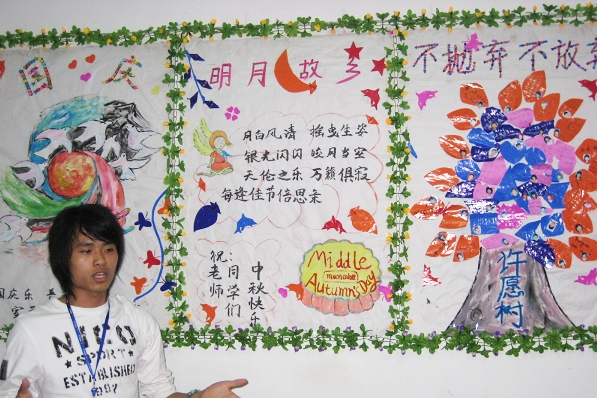 国庆
明月故乡
月白风清 摇曳生姿
银光闪闪 皎月当空
天伦之乐 万籁俱寂
每逢佳节倍思亲
祝:
老师
同学们
中秋快乐
Middle
Autumn Day
不抛弃不放弃
许愿树
NICO
SPORT